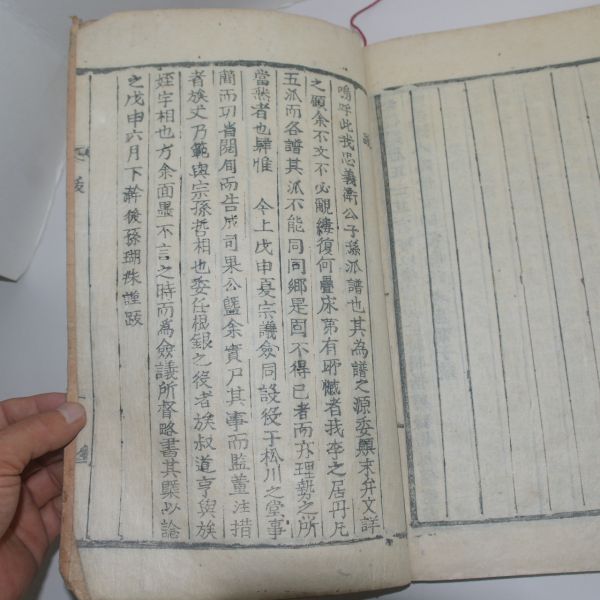 跋
嗚呼此我忠義衛公子孫派譜也其為譜之源委顚末弁文詳
之顧余不文不必覶縷復何疊床第有耶慽者我李之居丹凡
五派而各譜其派不能同同鄉是固不得已者而亦理勢之所
當然者也肆惟 令上戊申夏宗議僉同設役于松川之堂事
簡而功省閱旬而告成司果公曁余實尸其事而監董注措
者族丈乃範與宗孫哲相也委任根銀之役者族叔道亨與族
姪字相也方余面墨不言之時而為僉議所脅略書其槩以諗
之戊申六月下澣後孫瑚洙謹跋